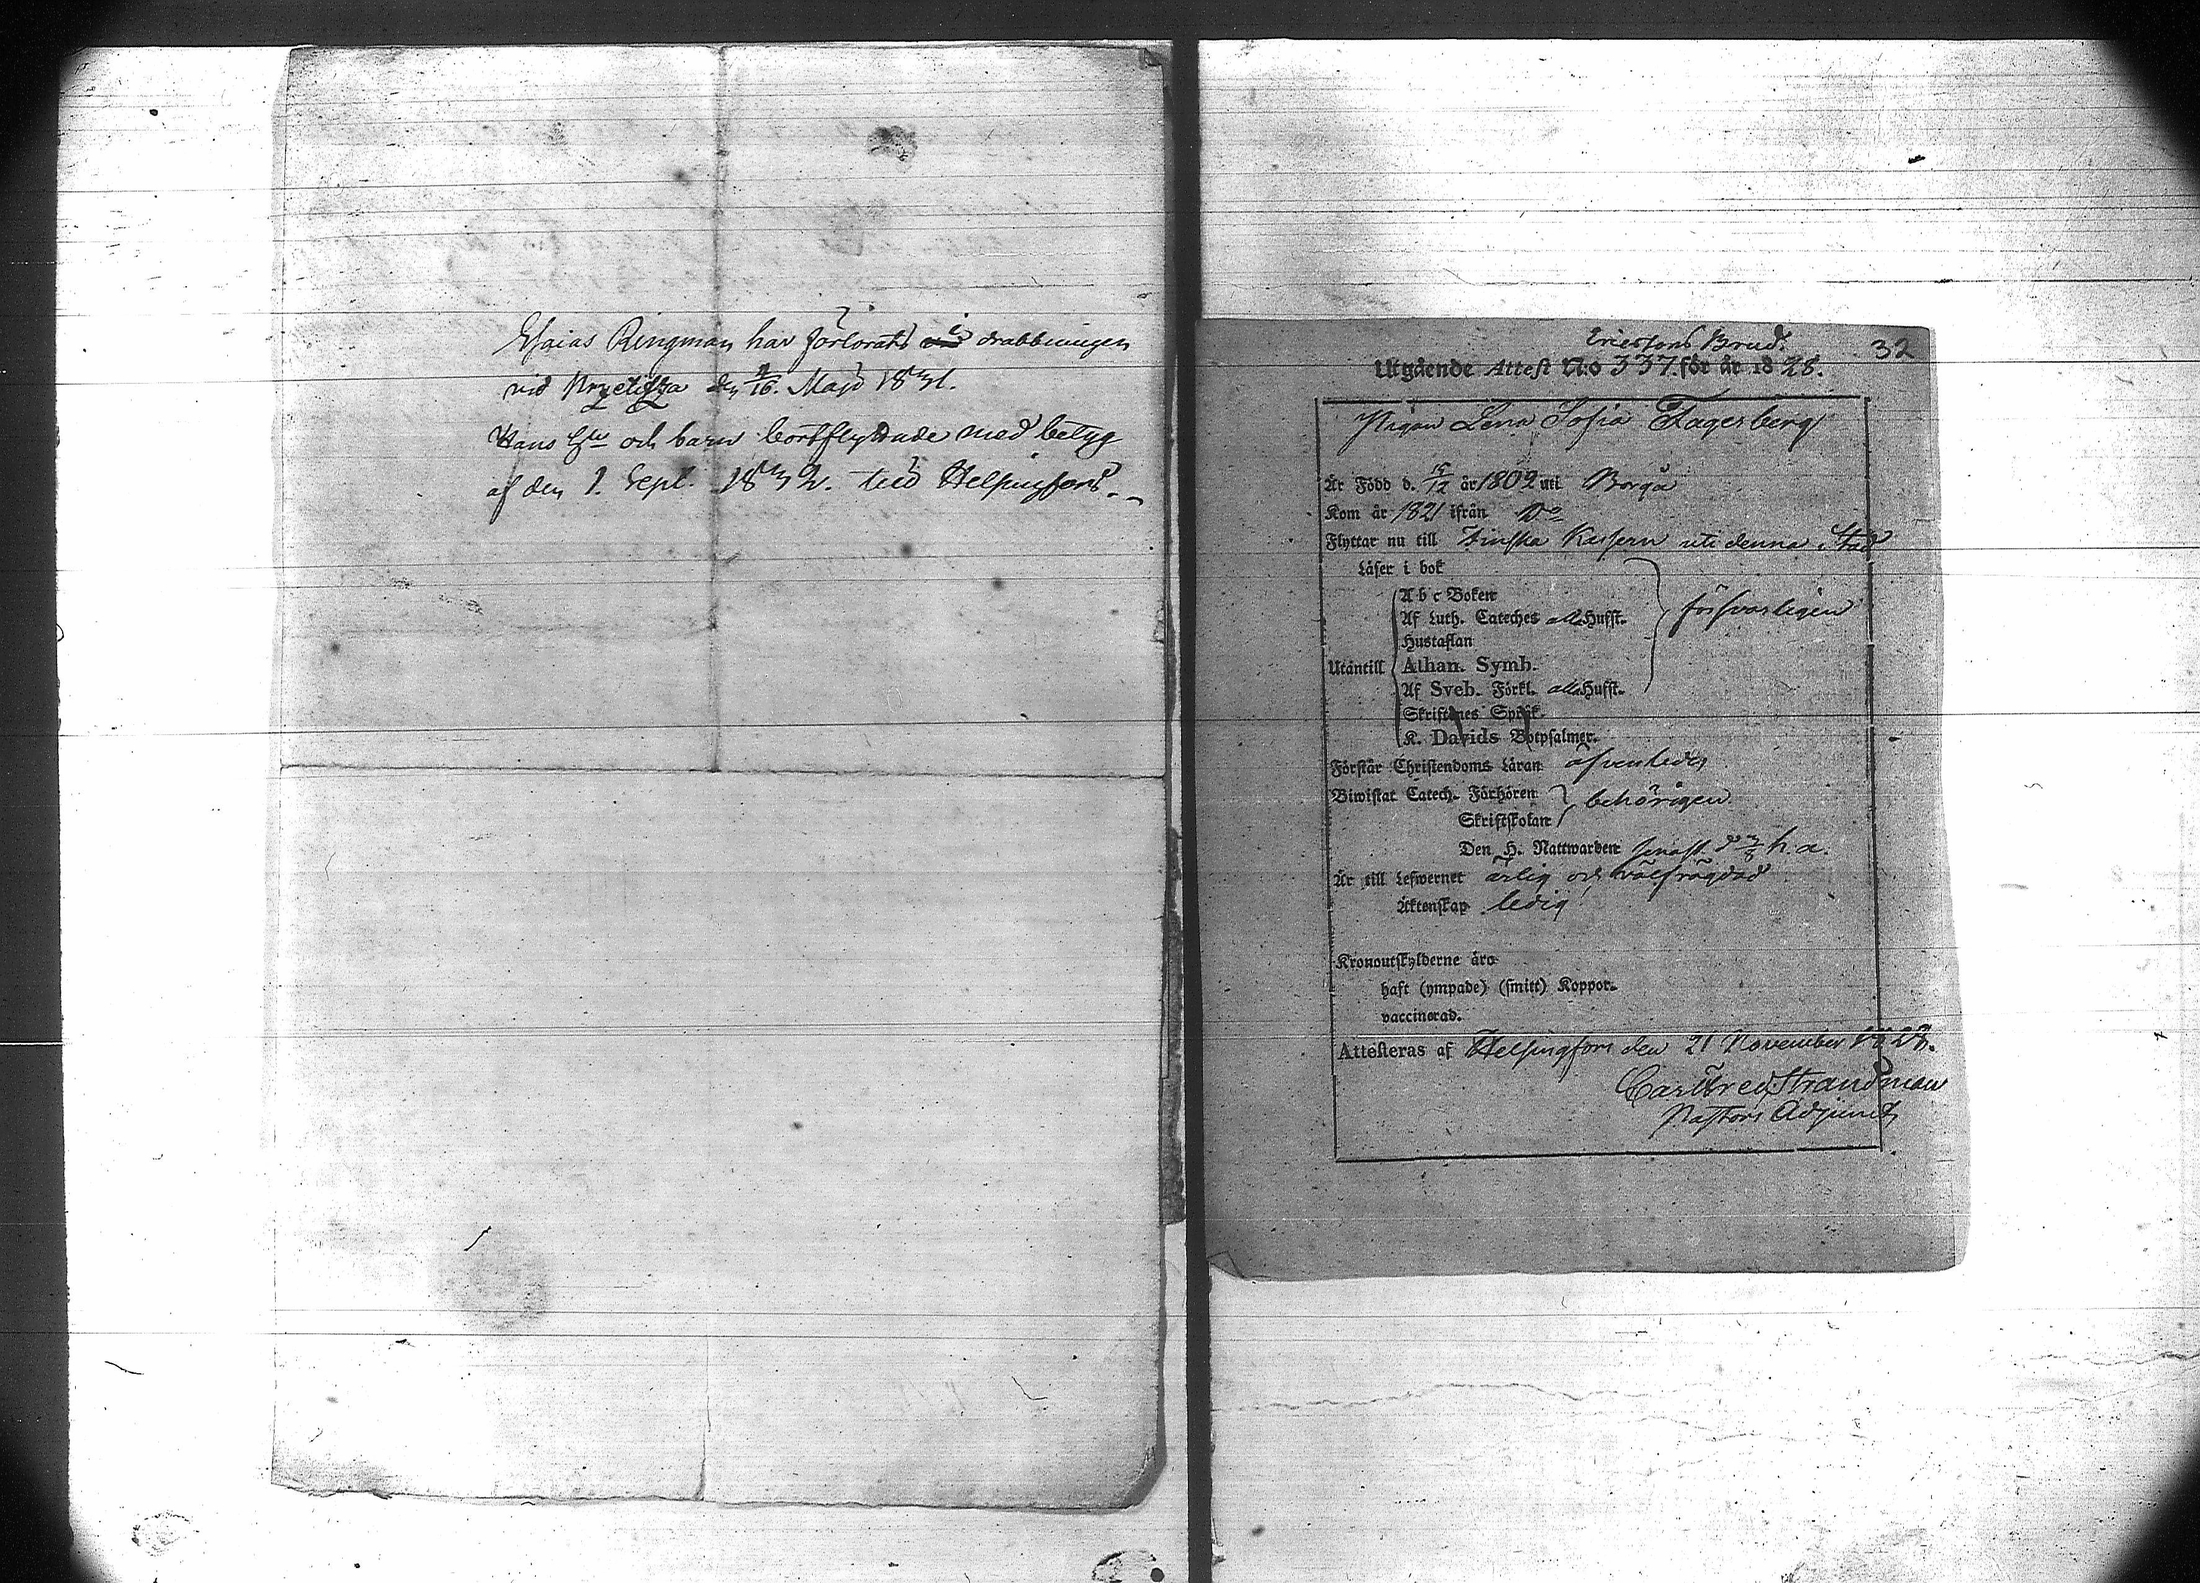 Esaias Ringman har förlorats i drabbningen
vid Przetitza den 4/16 Maji 1831.
Hans Hu och barn bortflyttade med betyg
af den 1. Sept. 1832. till Helsingfors.
Ericssons Brud.
32
Utgående Attest N:o 337 för år 1828.
Pigan Lena Sofia Fagerberg
Är Född d. 15/12 år 1802 uti Borgå
Kom år 1821 ifrån Do
Flyttar nu till Finska Kasern uti denna Stad
Läser i bok
A b c Boken
Af Luth. Cateches alla Hufst.
försvarligen
Hustaflan
Utantill Athan. Symb.
Af Sveb. Förkl. alla Hufst.
Skriftenes Språk.
K. Davids Botpsalmer.
Förstår Christendoms Läran äfvenledes
Biwistat Catech. Förhören behörigen
Skriftskolan
Den H. Nattwarden senast d h. a.
Är till Lefwernet ärlig och välfrägdad
Äktenskap ledig
Kronoutskylderne äro
haft (ympade) (smitt) Koppor.
vaccinerad.
Attesteras af Helsingfors den 21 November 1828.
Carl Fred Strandman
Pastors Adjunct